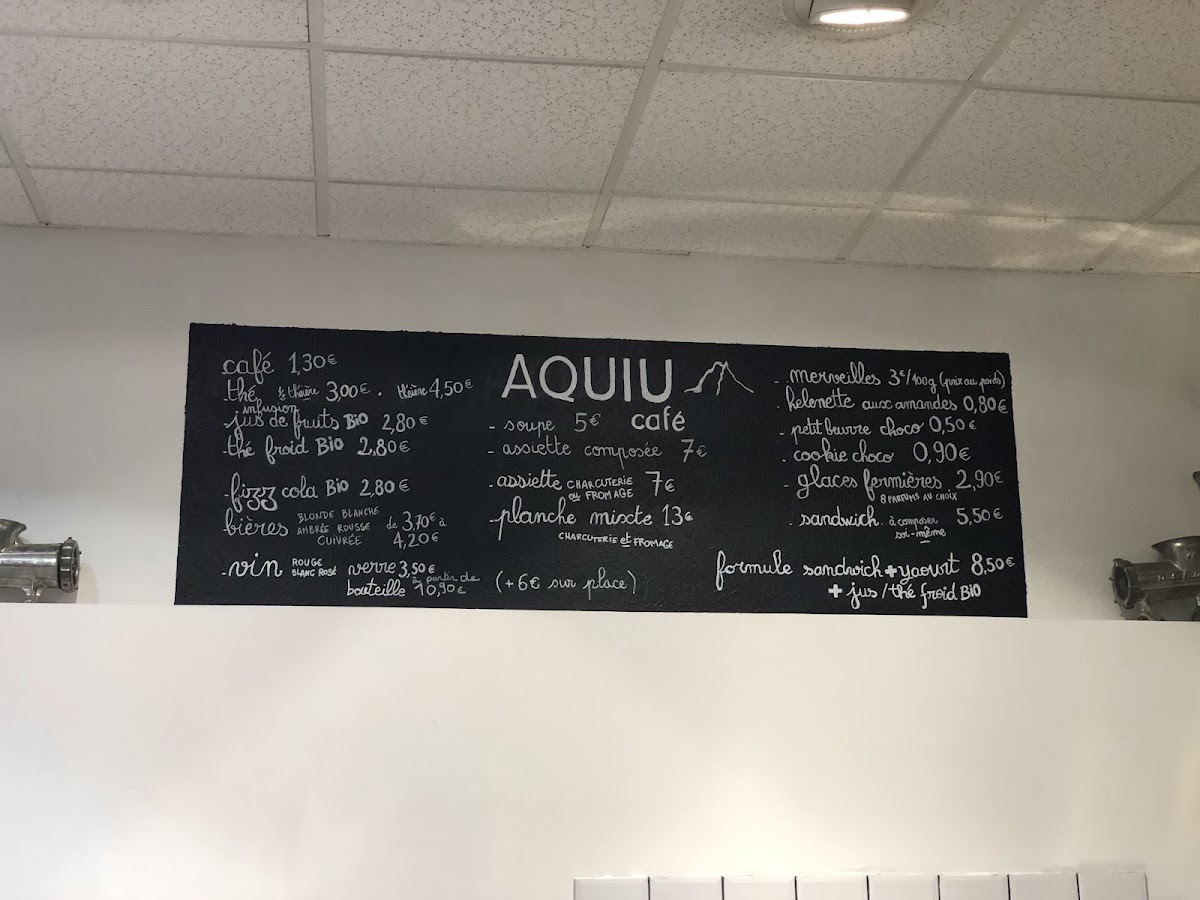 café 1,30€
- thé, infusion ½ théière 3,00€. théière 4,50€
- jus de fruits BIO 2,80€
- thé froid BIO 2,80€
- fizz cola BIO 2,80€
bières BLONDE BLANCHE AMBRÉE ROUSSE CUIVRÉE de 3,70€ à 4,20€
- vin ROUGE BLANC ROSÉ verre 3,50€
bouteille à partir de 10,90€
(+6€ sur place)
AQUIU
café
- soupe 5€
- assiette composée 7€
- assiette CHARCUTERIE OU FROMAGE 7€
- planche mixte 13€
CHARCUTERIE et FROMAGE
- merveilles 3€/100g (prix au poids)
- helenette aux amandes 0,80€
- petit beurre choco 0,50€
- cookie choco 0,90€
- glaces fermières 2,90€
8 PARFUMS AU CHOIX
- sandwich à composer soi-même 5,50€
formule sandwich + yaourt 8,50€
+ jus / thé froid BIO